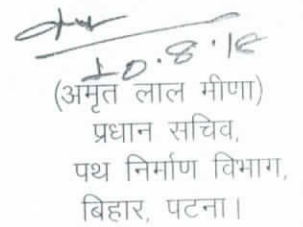 10.8.18
(अमृत लाल मीणा)
प्रधान सचिव,
पथ निर्माण विभाग,
बिहार, पटना।